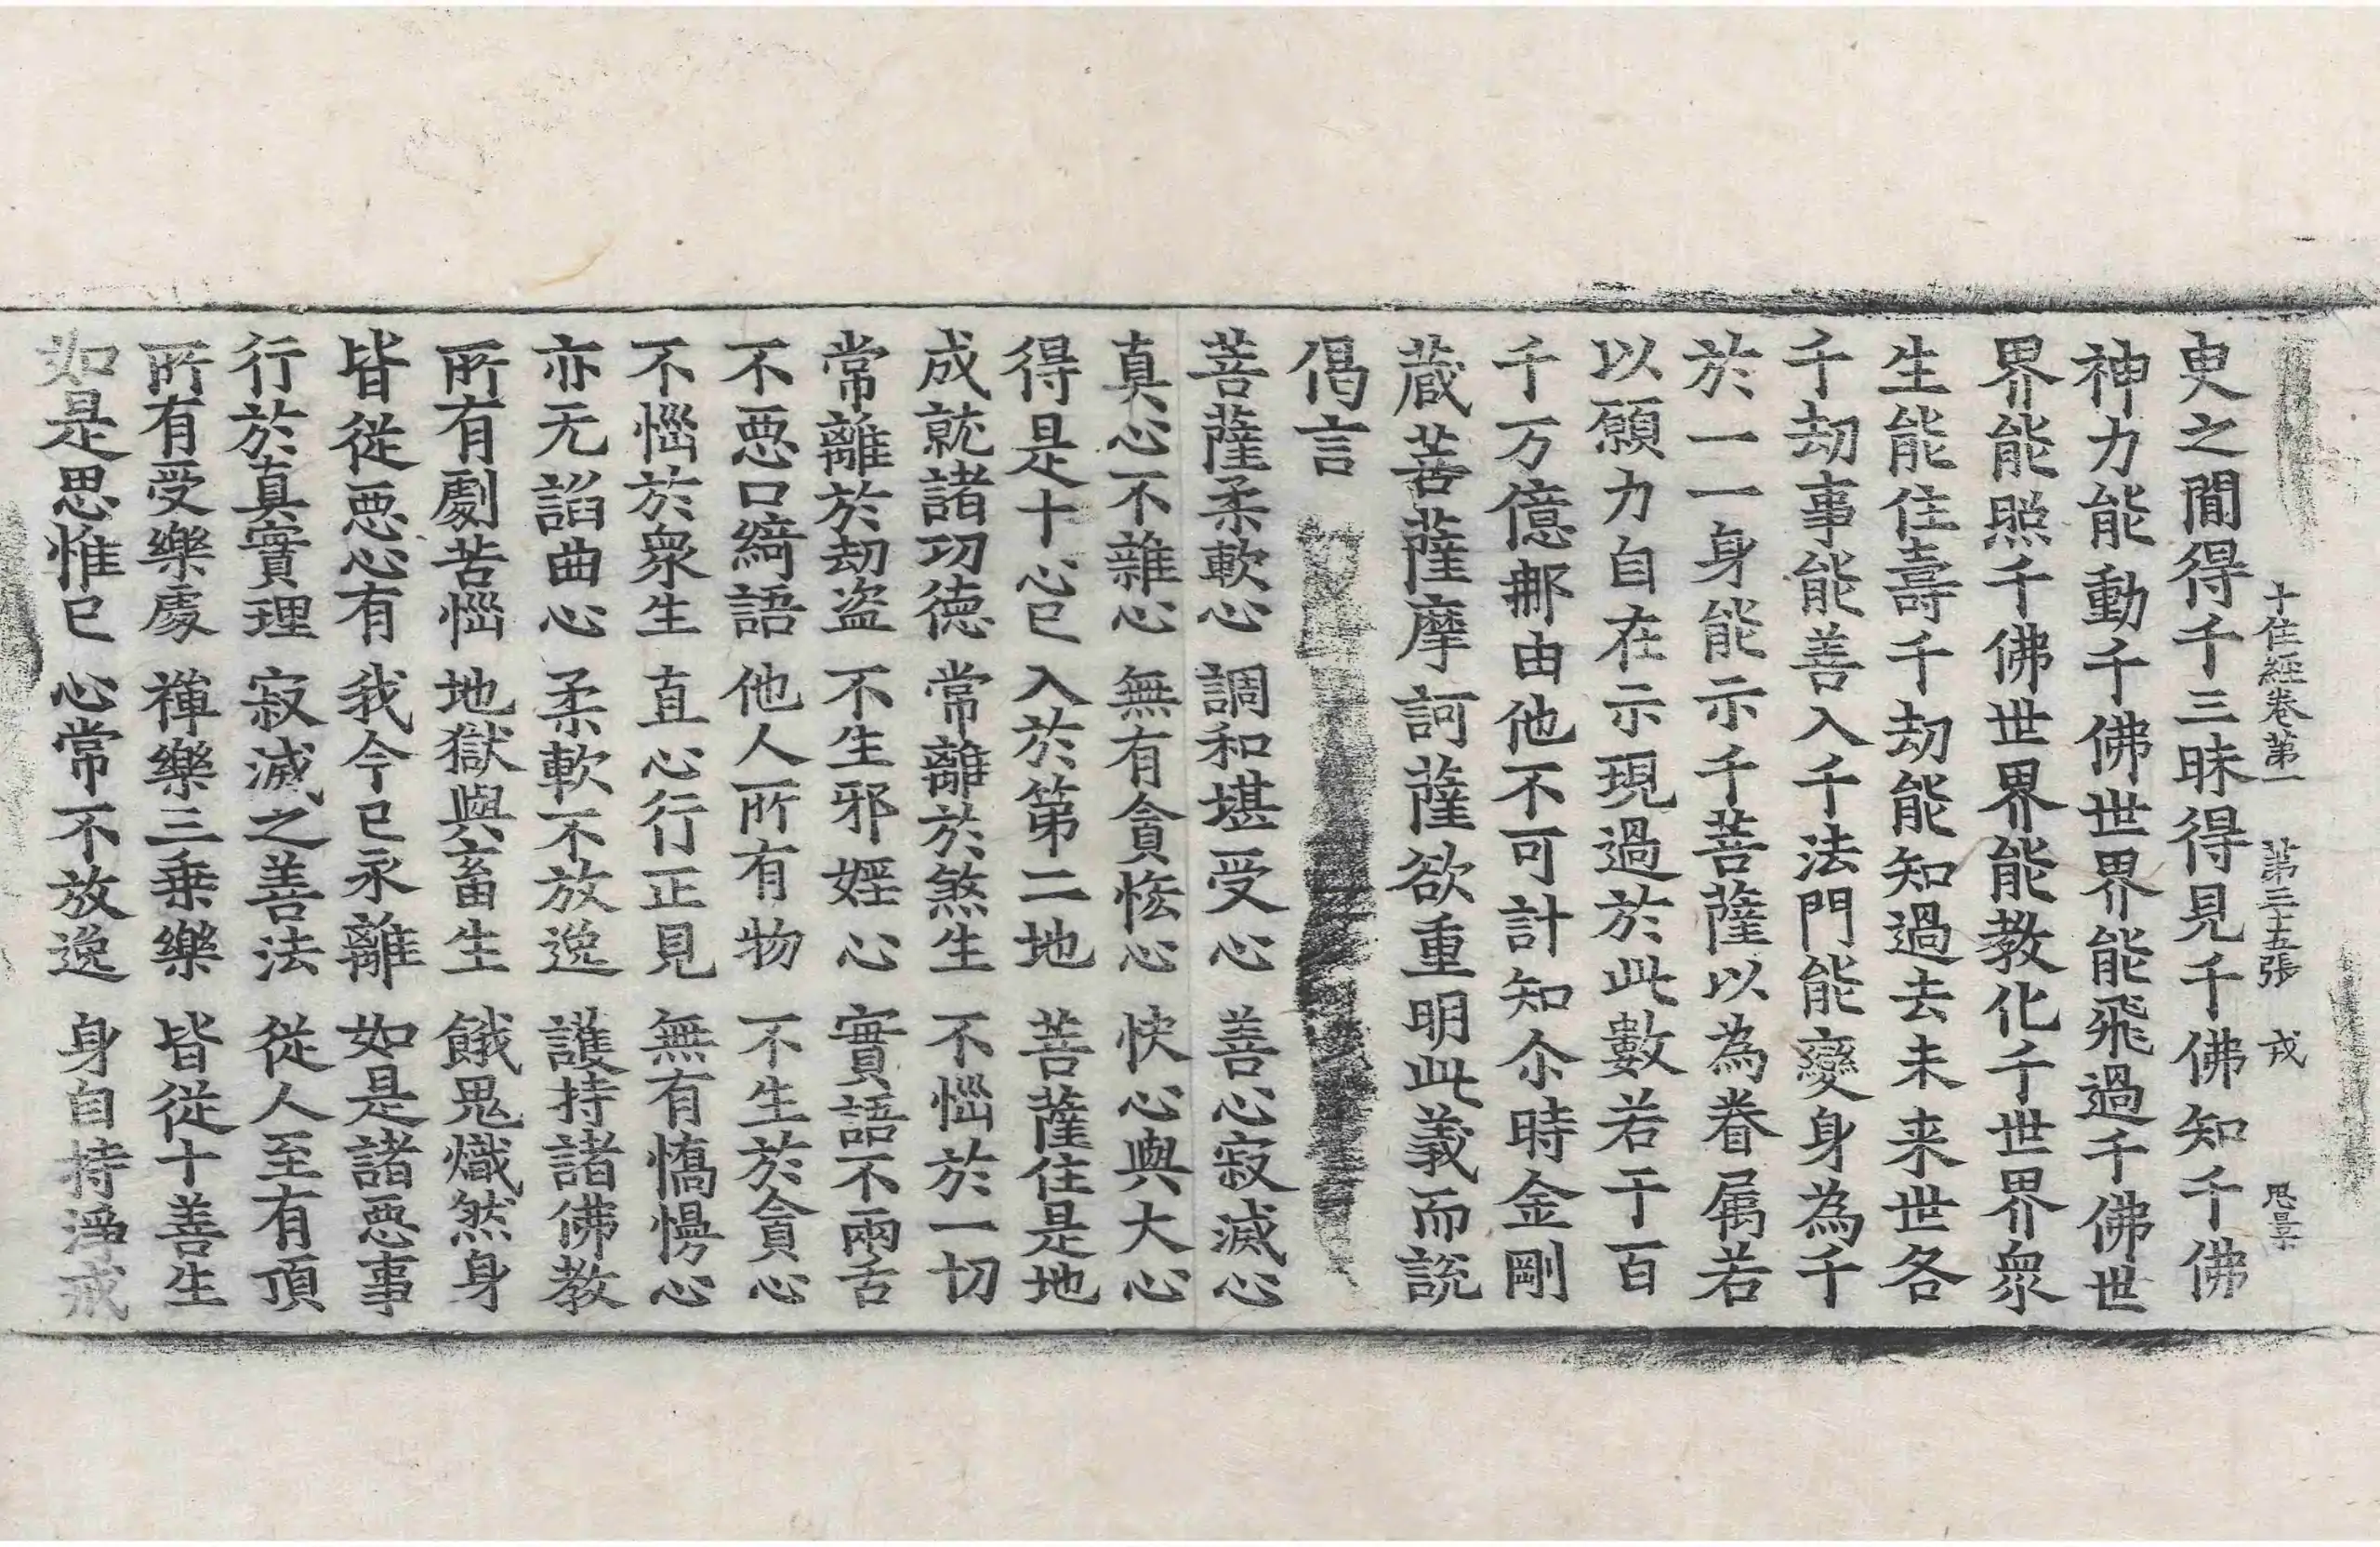 十住經卷第一 第三十五張 戎
臾之間得千三昧得見千佛知千佛
神力能動千佛世界能飛過千佛世
界能照千佛世界能教化千世界衆
生能住壽千劫能知過去未来世各
千劫事能善入千法門能變身為千
於一一身能示千菩薩以為眷属若
以願力自在示現過於此數若干百
千万億那由他不可計知尒時金剛
蔵菩薩摩訶薩欲重明此義而說
偈言
菩薩柔軟心 調和堪受心 善心寂滅心
真心不雜心 無有貪悋心 快心與大心
得是十心已 入於第二地 菩薩住是地
成就諸功德 常離於煞生 不惱於一切
常離於劫盜 不生邪婬心 實語不兩舌
不惡口綺語 他人所有物 不生於貪心
不惱於衆生 直心行正見 無有憍慢心
亦无諂曲心 柔軟不放逸 護持諸佛教
所有劇苦惱 地獄與畜生 餓鬼熾然身
皆從惡心有 我今已永離 如是諸惡事
行於真實理 寂滅之善法 從人至有頂
所有受樂處 禪樂三乗樂 皆從十善生
如是思惟已 心常不放逸 身自持淨戒